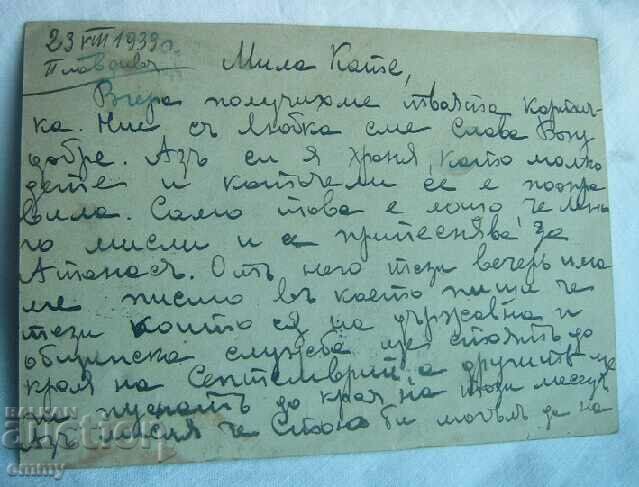 23 VIII 1939 г.
Пловдивъ
Мила Кате,
Вчера получихме твоята картич-
ка. Ние съ Любка сме слава Богу
добре. Азъ си я храня, като малко
дете и като чели се е попра
вила. Само това е лошо, че много
мисли и се притеснява за
Атанасъ. Отъ него тези вечерь има
ме писмо въ което пише че
тези които са на държавна и
общинска служба ще стоятъ до
края на Септемврий а другитѣ ще
пуснатъ до края на този месецъ
Азъ мисля че Стою би могълъ да на
BALKAN
auction
emmy